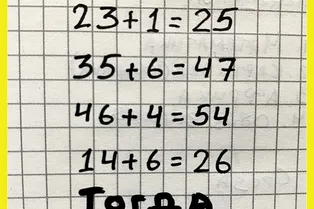 23+1=25
35+6=47
46+4=54
14+6=26